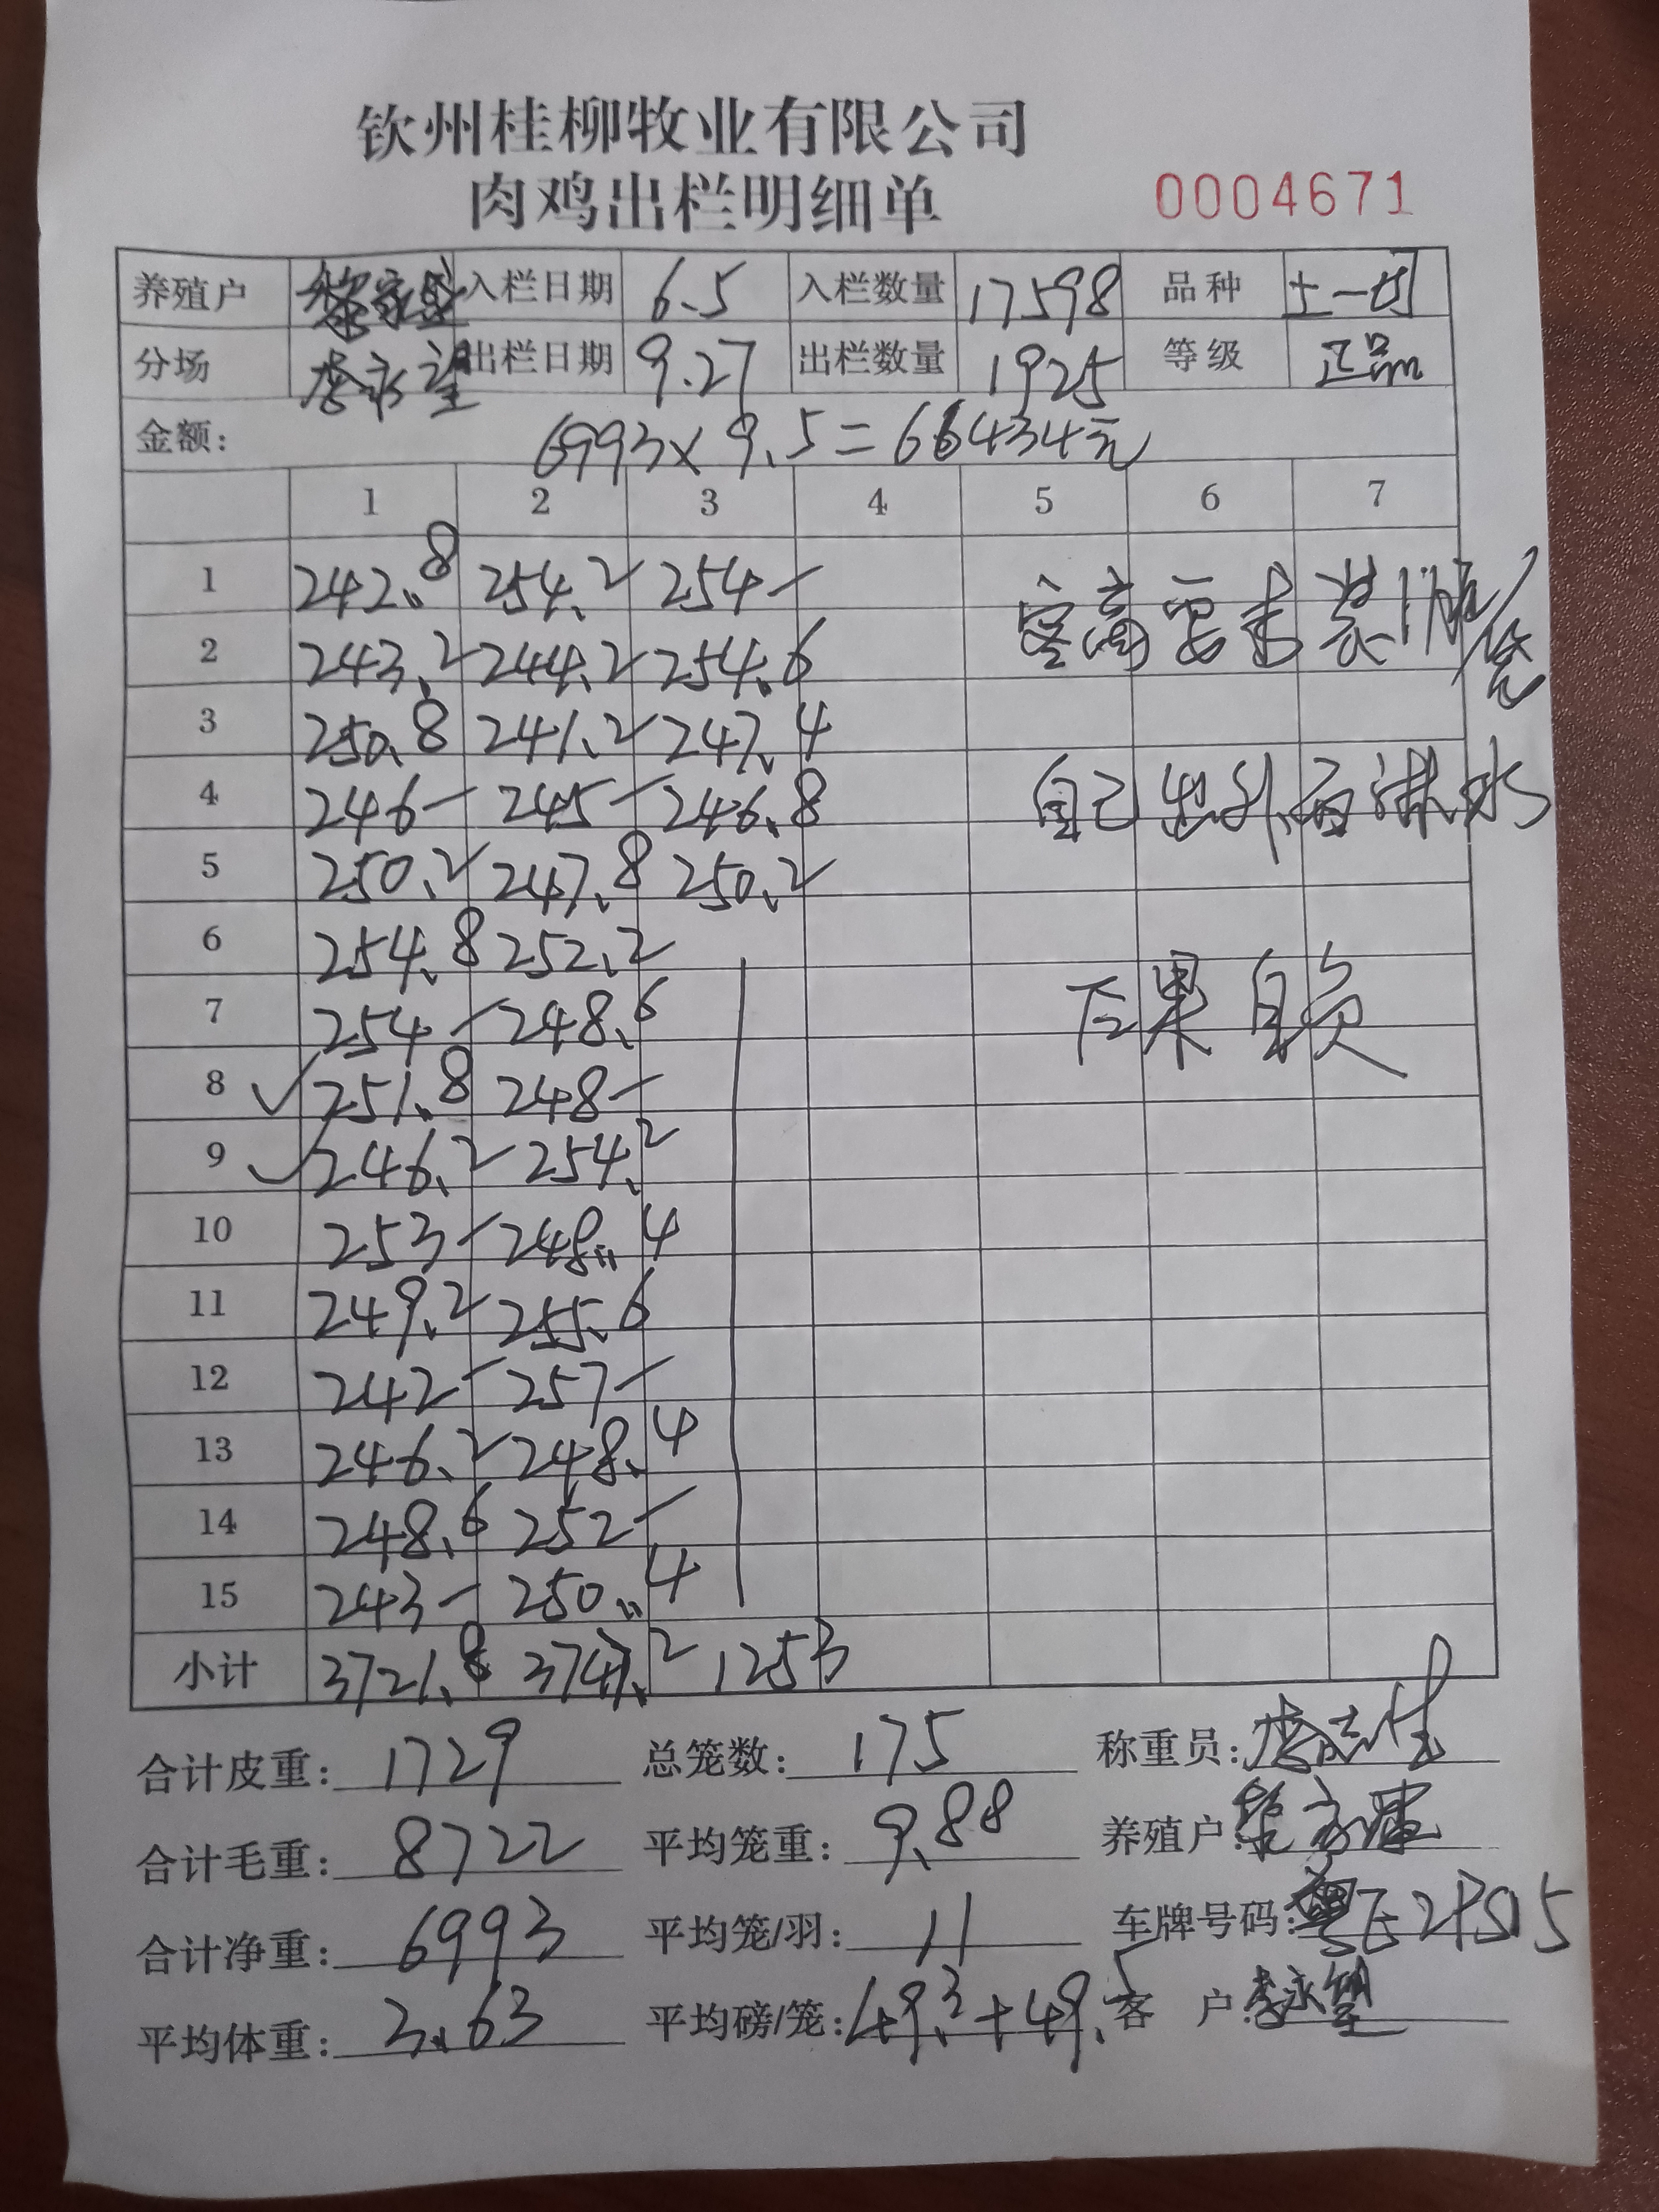 钦州桂柳牧业有限公司
肉鸡出栏明细单 0004671
养殖户 入栏日期 6.5 入栏数量 17598 品种 土一
分场 李永望 出栏日期 9.27 出栏数量 1925 等级 正品
金额: 6993×9.5=66434元
1 2 3 4 5 6 7
1 242.8 254.2 254- 客商要求装11
2 243.2 244.2 254.6
3 250.8 241.2 247.4
4 246- 245- 246.8 自己出外面淋水
5 250.2 247.8 250.2
6 254.8 252.2
7 254- 248.6 后果自负
8 ✓251.8 248-
9 ✓246.2 254.2
10 253- 248.4
11 249.2 255.6
12 242- 257-
13 246.2 248.4
14 248.6 252-
15 243- 250.4
小计 3721.8 3747.2 1253
合计皮重: 1729 总笼数: 175 称重员:
合计毛重: 8722 平均笼重: 9.88 养殖户:
合计净重: 6993 平均笼/羽: 11 车牌号码:
平均体重: 3.63 平均磅/笼: 49.3+49.5 客 户: 李永望